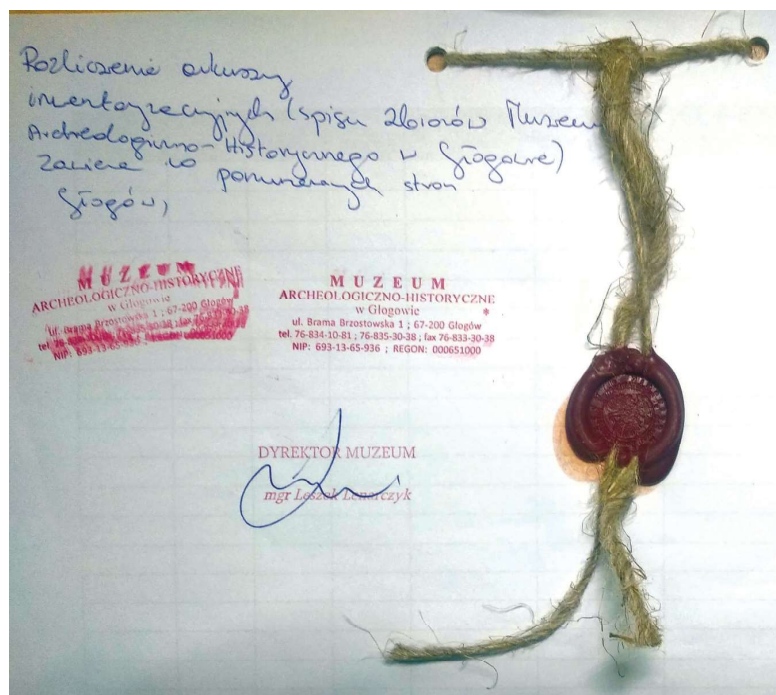 Rozliczenie arkuszy
inwentaryzacyjnych (spisu zbiorów Muzeum
Archeologiczno-Historycznego w Głogowie)
zawiera ponumerowanych stron
Głogów,
MUZEUM
ARCHEOLOGICZNO-HISTORYCZNE
w Głogowie
ul. Brama Brzostowska 1 ; 67-200 Głogów
NIP: 693-13-65-936
MUZEUM
ARCHEOLOGICZNO-HISTORYCZNE
w Głogowie
ul. Brama Brzostowska 1 ; 67-200 Głogów
tel. 76-834-10-81 ; 76-835-30-38 ; fax 76-833-30-38
NIP: 693-13-65-936 ; REGON: 000651000
DYREKTOR MUZEUM
mgr Leszek Lenarczyk